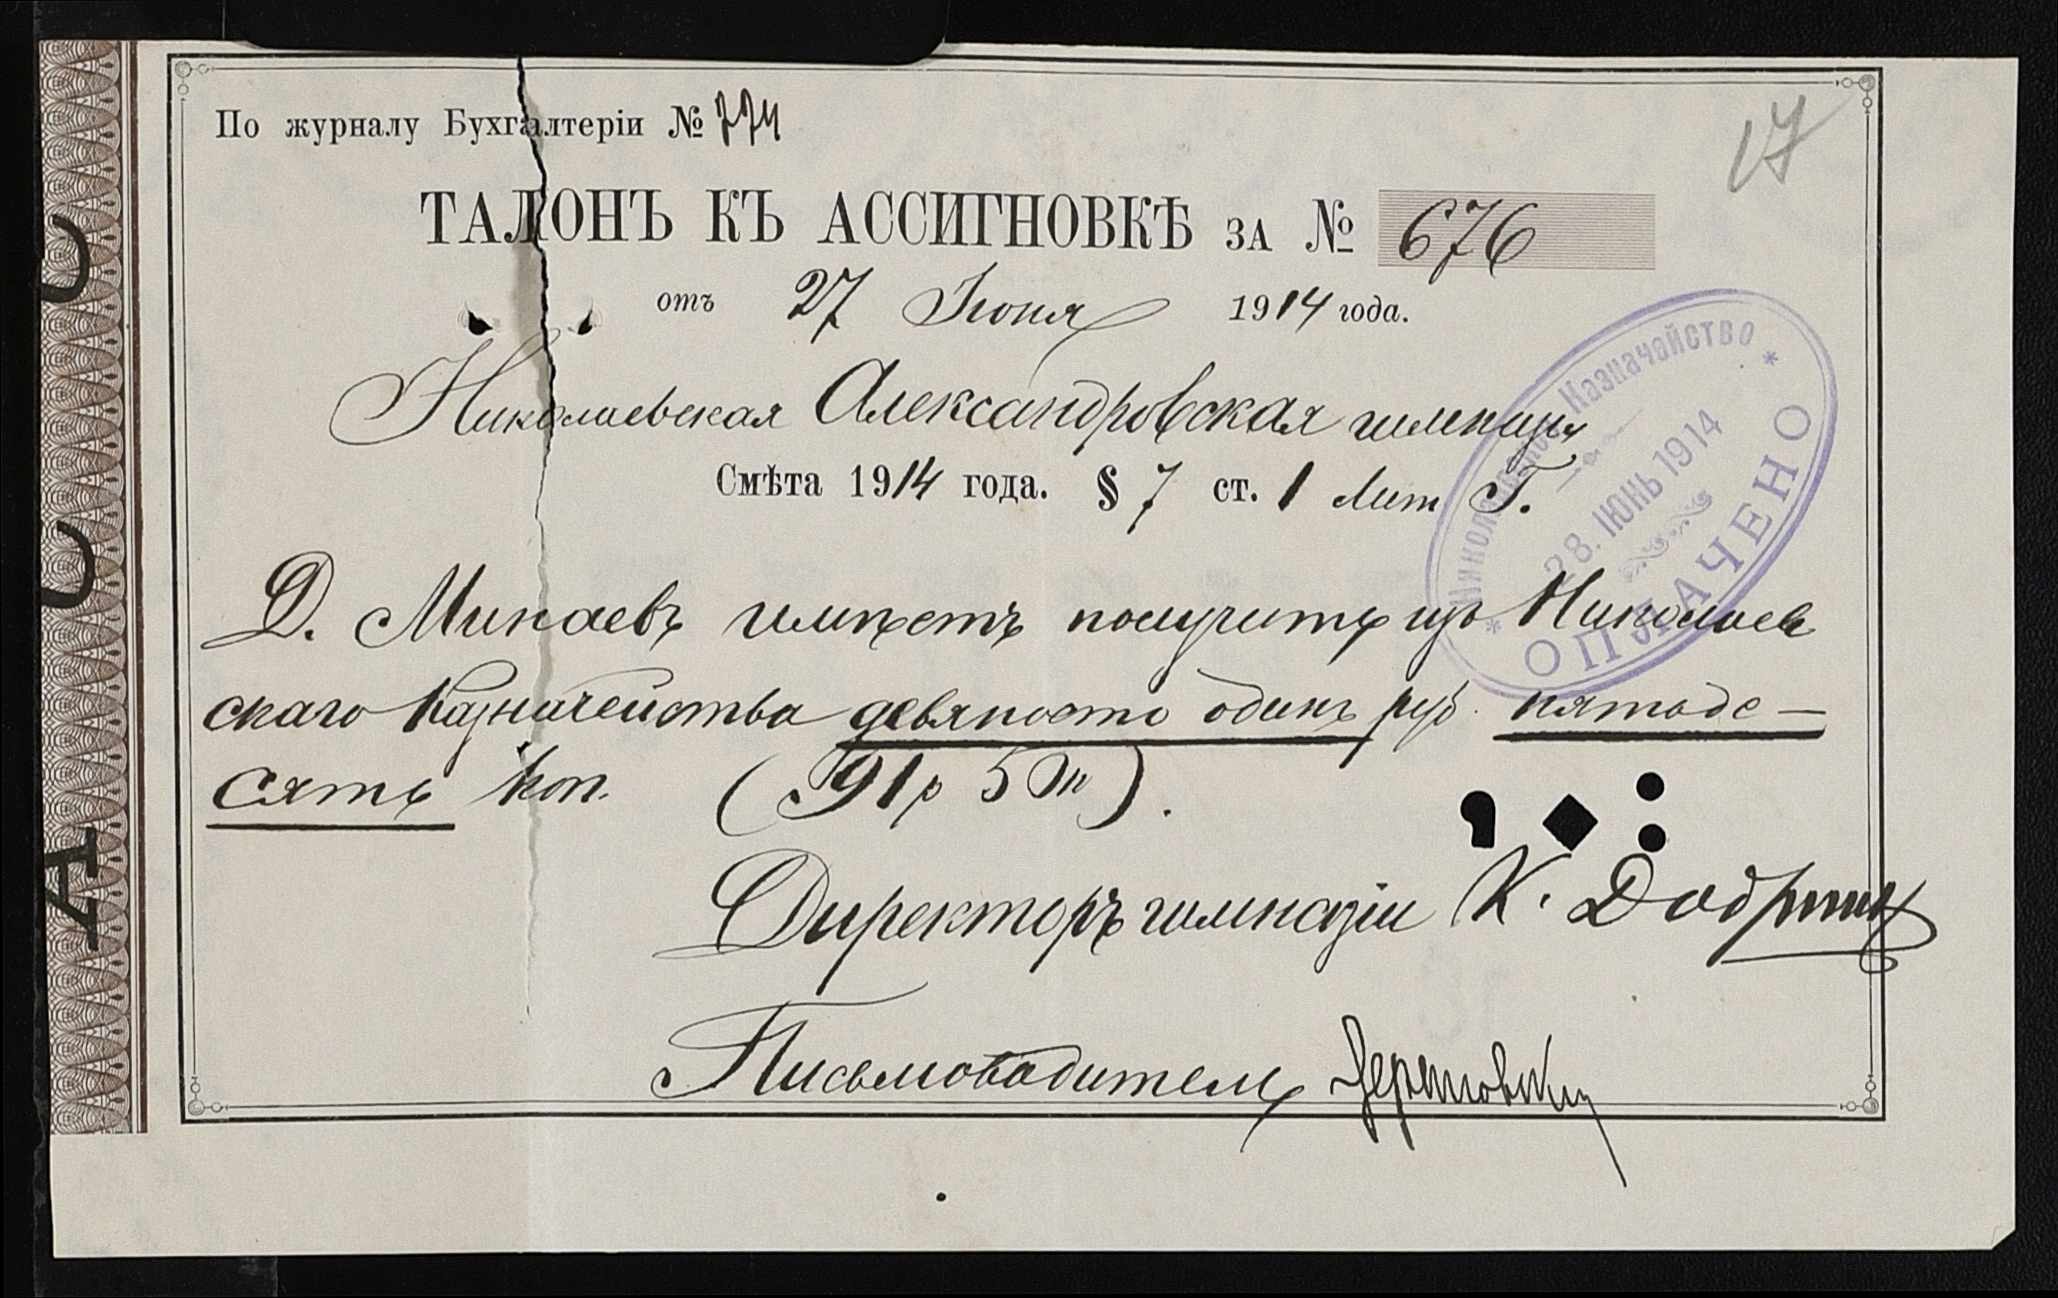 По журналу Бухгалтеріи № 774
17
ТАЛОНЪ КЪ АССИГНОВКѢ ЗА № 676
отъ 27 Іюня 1914 года.
Николаевская Александровская гимназія
Смѣта 1914 года. § 7 ст. 1 Лит Г.
Николаевское Казначейство
28. ІЮНЬ 1914
ОПЛАЧЕНО
Д. Минаевъ имѣетъ получить изъ Николаев
скаго Казначейства девяносто одинъ руб. пятьде—
сятъ коп. (91 р 50 к).
Директоръ гимназіи К.
Письмоводитель
А С С